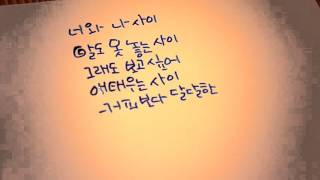 너와 나 사이
말도 못 놓는 사이
그래도 보고 싶어
애태우는 사이
커피보다 달달한